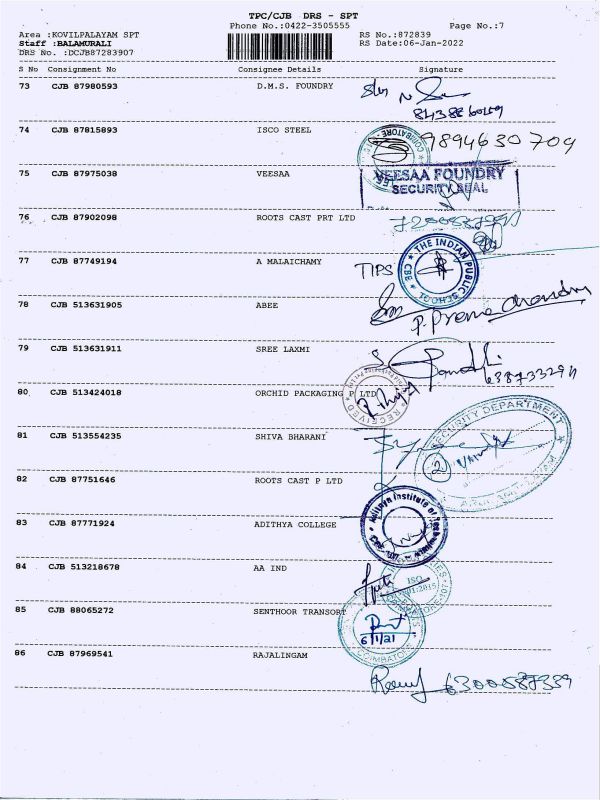 TPC/CJB DRS - SPT
Phone No.:0422-3505555 Page No.:7
Area :KOVILPALAYAM SPT RS No.:872839
Staff :BALAMURALI RS Date:06-Jan-2022
DRS No. :DCJB87283907
S No Consignment No Consignee Details Signature
73 CJB 87980593 D.M.S. FOUNDRY
74 CJB 87815893 ISCO STEEL 9894630709
COIMBATORE
75 CJB 87975038 VEESAA VEESAA FOUNDRY
SECURITY SEAL
76 CJB 87902098 ROOTS CAST PRT LTD
77 CJB 87749194 A MALAICHAMY TIPS THE INDIAN PUBLIC SCHOOL CBE
78 CJB 513631905 ABEE
P. Prema Chandru
79 CJB 513631911 SREE LAXMI
80 CJB 513424018 ORCHID PACKAGING P LTD
RECEIVED
81 CJB 513554235 SHIVA BHARANI SECURITY DEPARTMENT
2
82 CJB 87751646 ROOTS CAST P LTD
83 CJB 87771924 ADITHYA COLLEGE Adithya Institute of Technology
84 CJB 513218678 AA IND
ISO
85 CJB 88065272 SENTHOOR TRANSORT
6/1/21
COIMBATORE
86 CJB 87969541 RAJALINGAM
6300587339